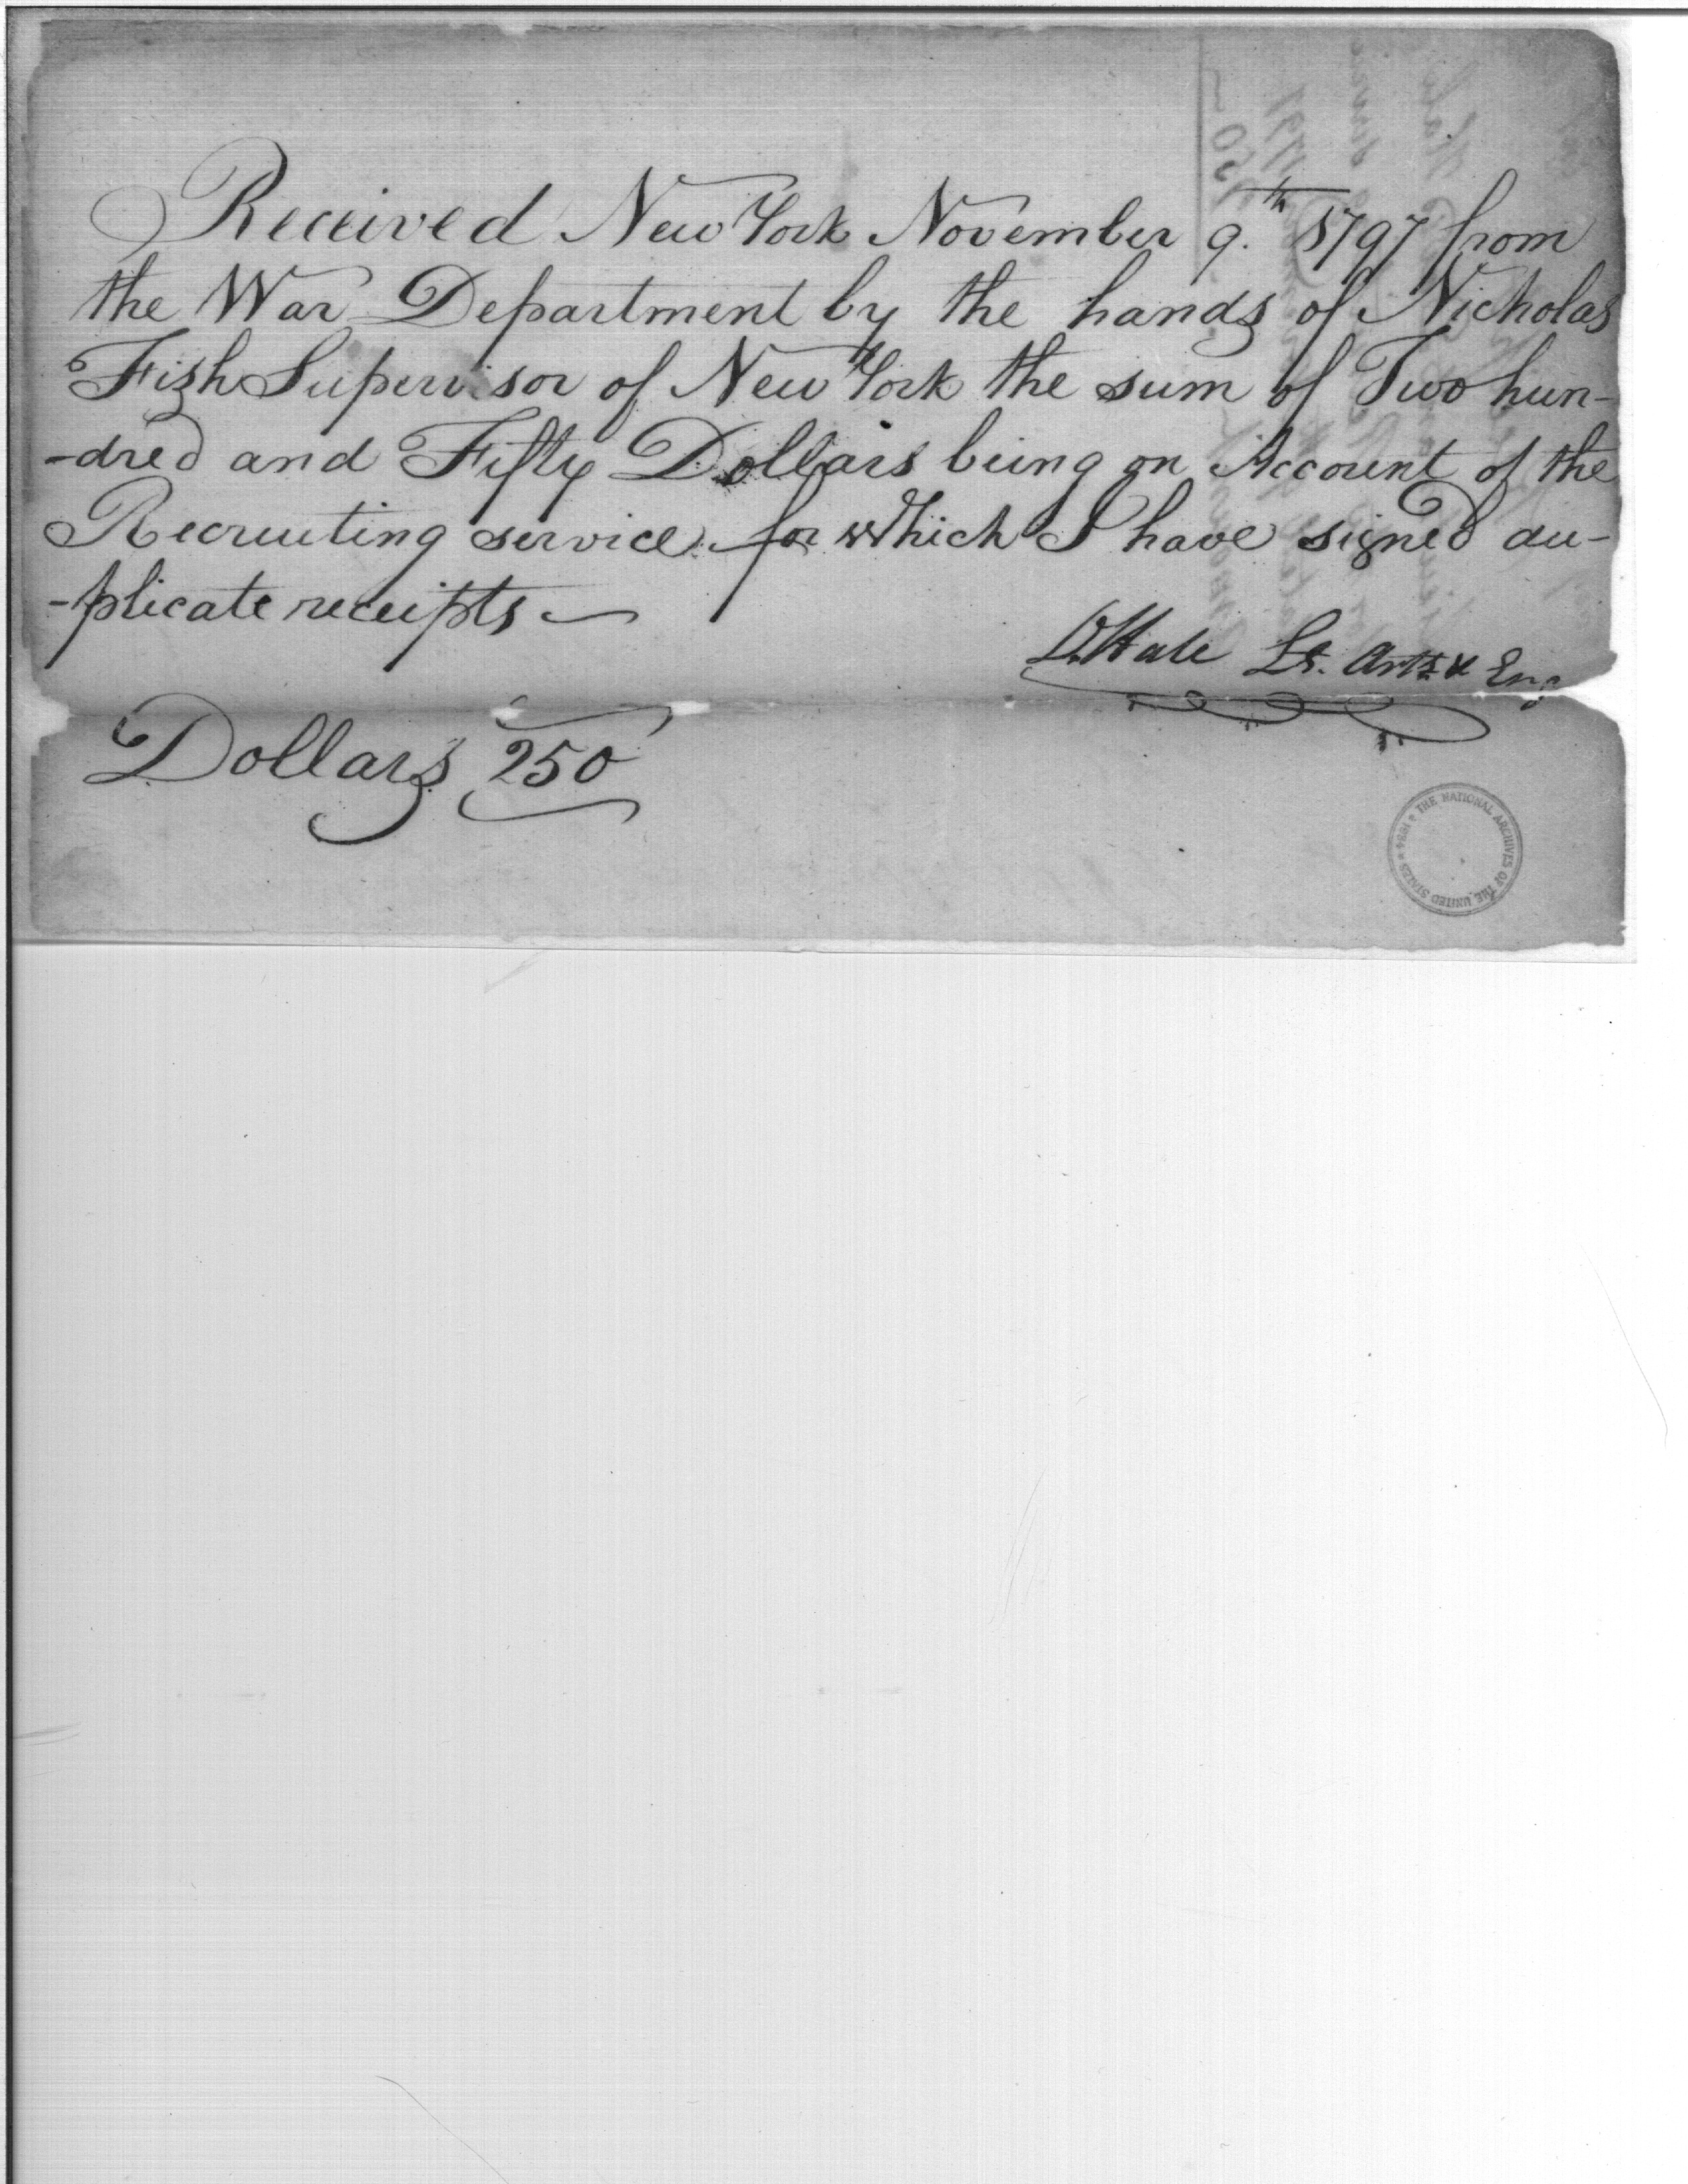 Received New York November 9.th 1797 from
the War Department by the hands of Nicholas
Fish Supervisor of New York the sum of Two hun-
-dred and Fifty Dollars being on Account of the
Recruiting service for which I have signed du-
-plicate receipts —
Hale Lt. Arts & Eng
Dollars 250
THE NATIONAL ARCHIVES OF THE UNITED STATES 1934